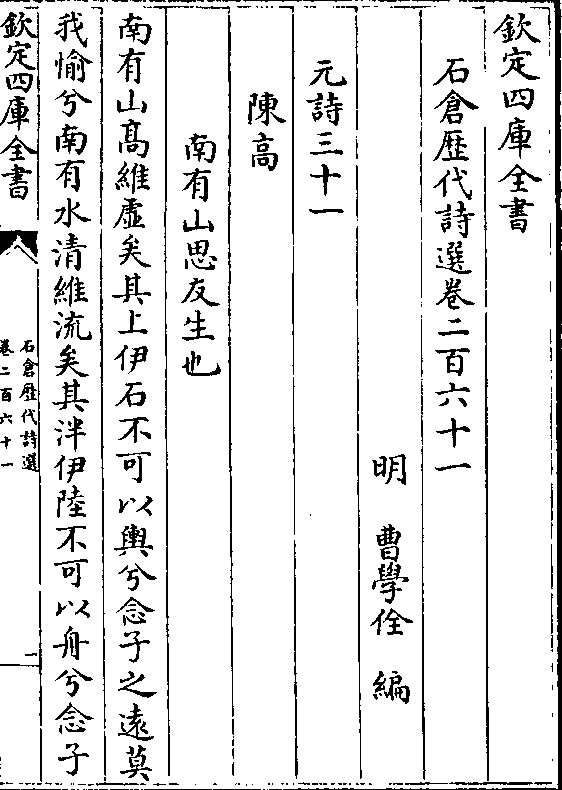 欽定四庫全書
石倉歴代詩選卷二百六十一
明 曹學佺 編
元詩三十一
陳高
南有山思友生也
南有山髙維虛矣其上伊石不可以輿兮念子之遠莫
我愉兮南有水清維流矣其泮伊陸不可以舟兮念子
欽定四庫全書
石倉歴代詩選
卷二百六十一
一